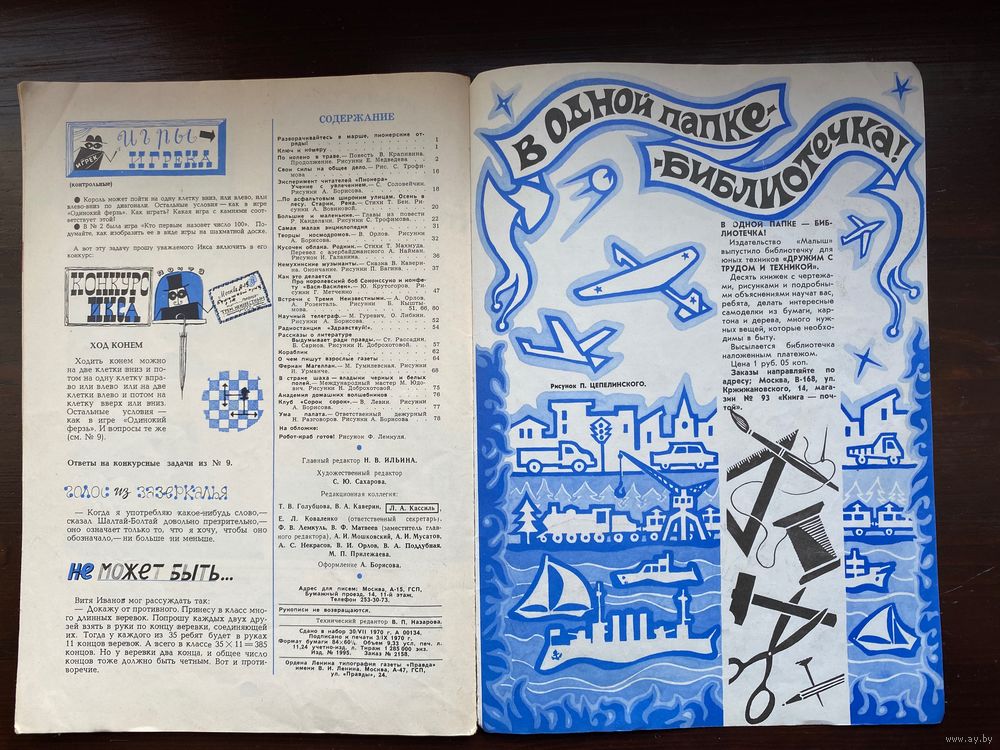 ИГРЫ
ИГРЕКА
ИГРЕК
(контрольные)
● Король может пойти на одну клетку вниз, или влево, или
влево-вниз по диагонали. Остальные условия — как в игре
«Одинокий ферзь». Как играть? Какая игра с камнями соот-
ветствует этой!
● В № 2 была игра «Кто первым назовет число 100». По-
думайте, как изобразить ее в виде игры на шахматной доске.
А вот эту задачу прошу уважаемого Икса включить в его
конкурс:
КОНКУРС
ИКСА
ПОЧТА
ХОД КОНЕМ
Ходить конем можно
на две клетки вниз и по-
том на одну клетку впра-
во или влево или на две
клетки влево и потом на
клетку вверх или вниз.
Остальные условия —
как в игре «Одинокий
ферзь». И вопросы те же
(см. № 9).
Ответы на конкурсные задачи из № 9.
ГОЛОС ИЗ ЗАЗЕРКАЛЬЯ
— Когда я употребляю какое-нибудь слово,—
сказал Шалтай-Болтай довольно презрительно,—
оно означает только то, что я хочу, чтобы оно
обозначало,— ни больше ни меньше.
НЕ МОЖЕТ БЫТЬ...
Витя Иванов мог рассуждать так:
— Докажу от противного. Принесу в класс мно-
го длинных веревок. Попрошу каждых двух дру-
зей взять в руки по концу веревки, соединяющей
их. Тогда у каждого из 35 ребят будет в руках
11 концов веревок. А всего в классе 35×11=385
концов. Но у веревки два конца, и общее число
концов тоже должно быть четным. Вот и проти-
воречие.
СОДЕРЖАНИЕ
Разворачивайтесь в марше, пионерские от-
ряды! 1
Ключ и номеру 1
По колено в траве.— Повесть В. Крапивина.
Продолжение. Рисунки Е. Медведева 2
Свои силы на общее дело.— Рис. С. Трофи-
мова 16
Эксперимент читателей «Пионера»
Учение с увлечением.— С. Соловейчик.
Рисунки А. Борисова. 18
...По асфальтовым широким улицам. Осень в
лесу. Старик. Река.— Стихи Т. Бек. Ри-
сунки А. Вовиковой. 20
Большие и маленькие.— Главы из повести
Р. Канделаки. Рисунки С. Трофимова. 22
Самая малая энциклопедия 31
Творцы космодромов.— В. Орлов. Рисунки
А. Борисова. 32
Кусочек облака. Родник.— Стихи Т. Махмуда.
Перевел с азербайджанского А. Найман.
Рисунки И. Галанина. 36
Немухинские музыканты.— Сказка В. Кавери-
на. Окончание. Рисунки П. Багина. 37
Как это делается
Про королевский боб Сононссуно и конфе-
ту «Вася-Василек».— Ю. Крутогоров. Ри-
сунки Г. Метченко 47
Встречи с Тремя Неизвестными.— А. Орлов,
А. Розенталь. Рисунки Е. Кышты-
мова. 51, 66, 80
Научный телеграф.— М. Гуревич, О. Либкин.
Рисунки А. Борисова. 52
Радиостанция «Здравствуй!» 54
Рассказы о литературе
Выдумывает ради правды.— Ст. Рассадин,
Б. Сарнов. Рисунки И. Доброхотовой. 57
Кораблик 62
О чем пишут взрослые газеты 64
Фернан Магеллан.— М. Гумилевская. Рисунки
И. Урманче. 68
В стране шаха — владыки черных и белых
полей.— Международный мастер М. Юдо-
вич. Рисунки И. Доброхотовой. 75
Академия домашних волшебников 76
Клуб «Сорок сорок».— В. Левин. Рисунки
А. Борисова. 77
Ума палата.— Ответственный дежурный
Н. Разговоров. Рисунки А. Борисова 78
На обложке:
Робот-краб готов! Рисунок Ф. Лемкуля.
Главный редактор Н. В. ИЛЬИНА.
Художественный редактор
С. Ю. Сахарова.
Редакционная коллегия:
Т. В. Голубцова, В. А. Каверин, Л. А. Кассиль
Е. Л. Коваленко (ответственный секретарь),
Ф. В. Лемкуль, В. Ф. Матвеев (заместитель глав-
ного редактора), А. И. Мошковский, А. И. Мусатов,
А. С. Некрасов, В. И. Орлов, В. А. Поддубная,
М. П. Прилежаева.
Оформление А. Борисова.
Адрес для писем: Москва, А-15, ГСП,
Бумажный проезд, 14, 11-й этаж.
Телефон 253-30-73.
Рукописи не возвращаются.
Технический редактор В. П. Назарова.
Сдано в набор 30/VII 1970 г. А 00134.
Подписано к печати 3/IX 1970 г.
Формат бумаги 84×60⅛. Объем 9,33 усл. печ. л.
11,24 учетно-изд. л. Тираж 1 285 000 экз.
Изд. № 1995. Заказ № 2158.
Ордена Ленина типография газеты «Правда»
имени В. И. Ленина. Москва, А-47, ГСП,
ул. «Правды», 24.
В ОДНОЙ ПАПКЕ-
-БИБЛИОТЕЧКА!
В ОДНОЙ ПАПКЕ — БИБ-
ЛИОТЕЧКА!
Издательство «Малыш»
выпустило библиотечку для
юных техников «ДРУЖИМ С
ТРУДОМ И ТЕХНИКОЙ».
Десять книжек с чертежа-
ми, рисунками и подробны-
ми объяснениями научат вас,
ребята, делать интересные
самоделки из бумаги, кар-
тона и дерева, много нуж-
ных вещей, которые необхо-
димы в быту.
Высылается библиотечка
наложенным платежом.
Цена 1 руб. 05 коп.
Заказы направляйте по
адресу: Москва, В-168, ул.
Кржижановского, 14, мага-
зин № 93 «Книга — поч-
той».
Рисунок П. ЦЕПЕЛИНСКОГО.
www.ay.by